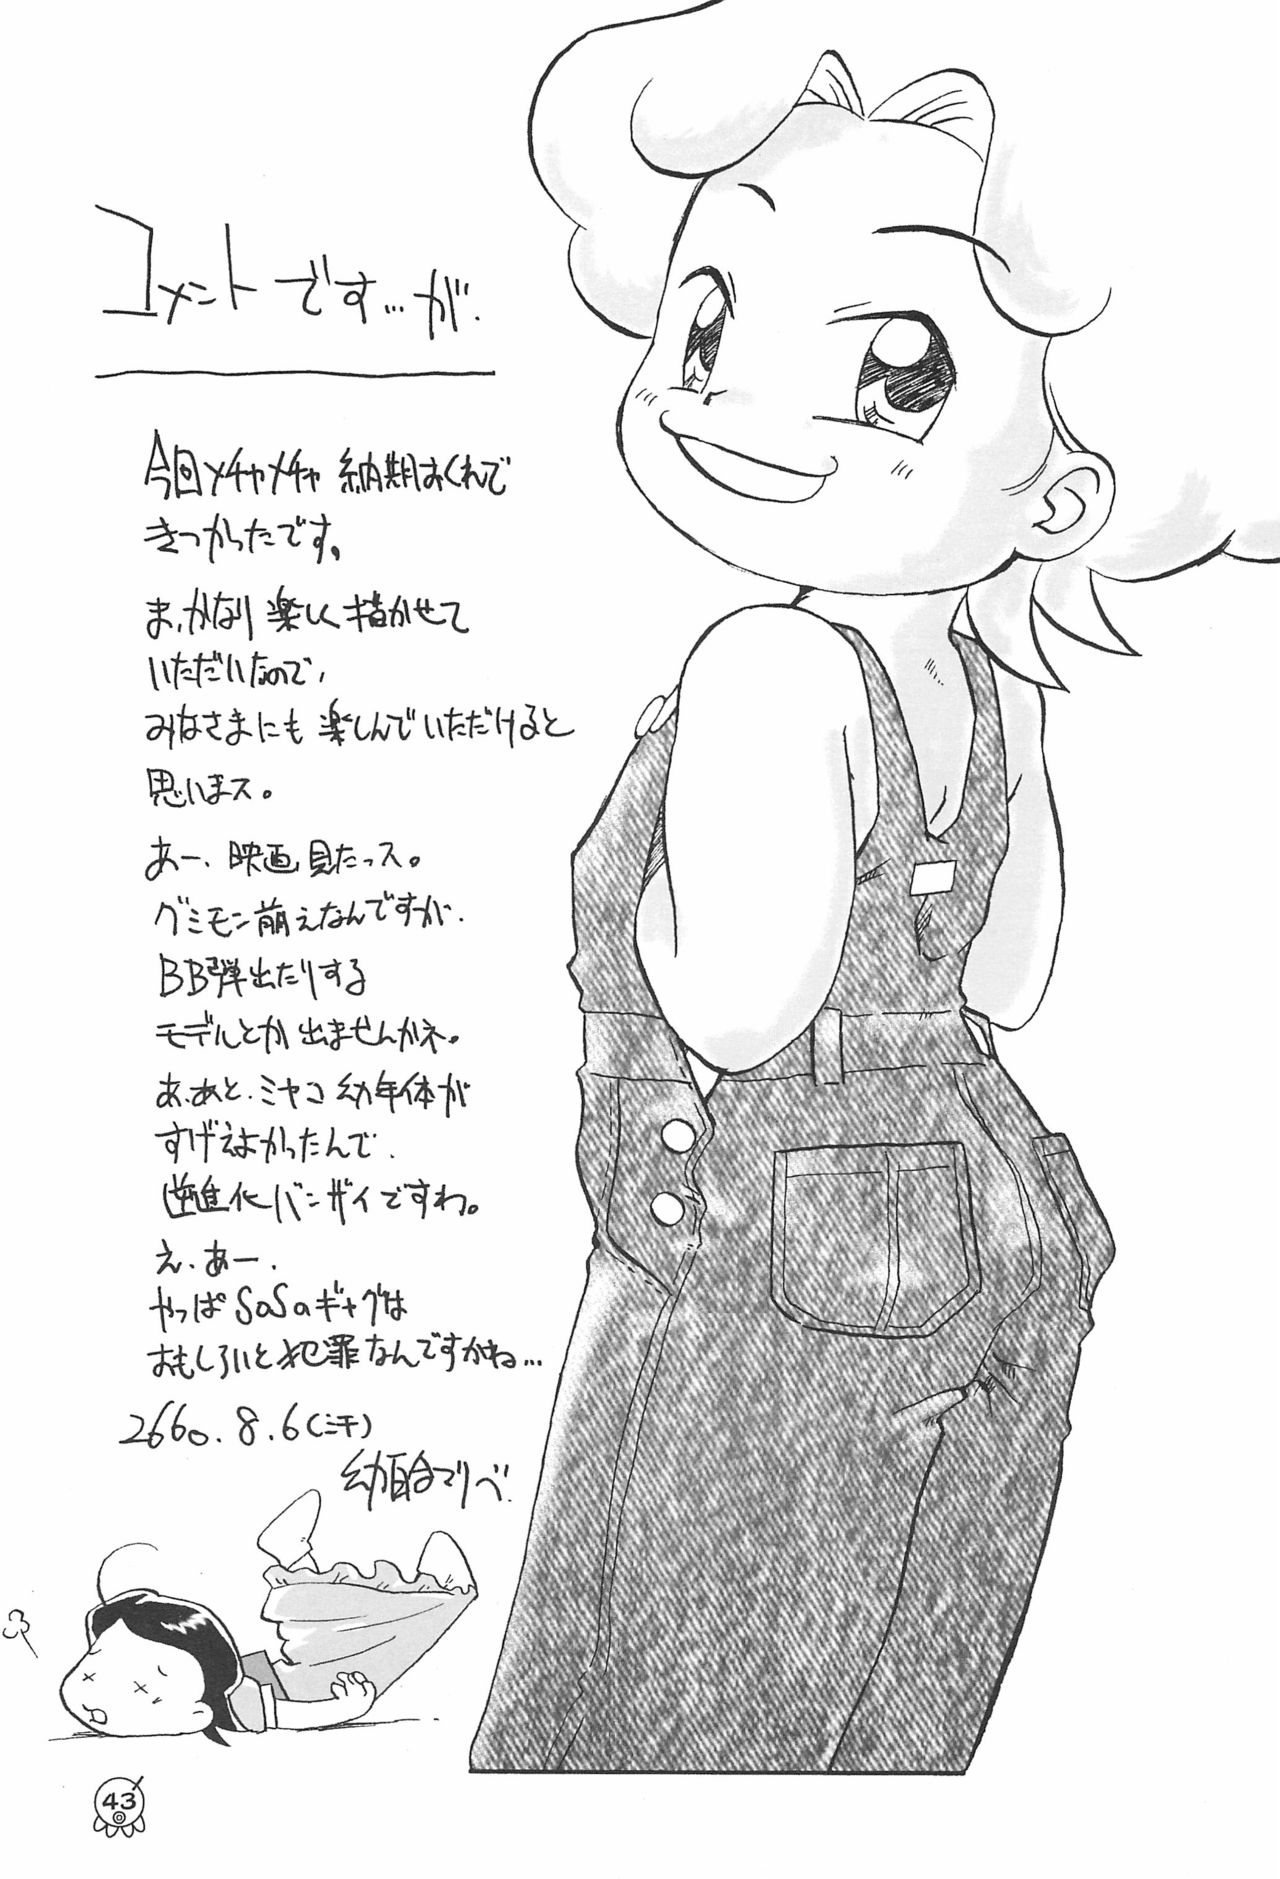 コメントです…が.
今回メチャメチャ納期おくれで
きつかったです。
ま、かなり楽しく描かせて
いただいたので、
みなさまにも楽しんでいただけると
思いまス。
あー、映画見たっス。
グミモン萌えなんですが.
BB弾出たりする
モデルとか出ませんかネ。
あ、あと、ミヤコ幼年体が
すげえよかったんで.
逆進化バンザイですわ。
え、あー.
やっぱSaSaギャグは
おもしろいと犯罪なんですかね…
2660.8.6(汗)
43